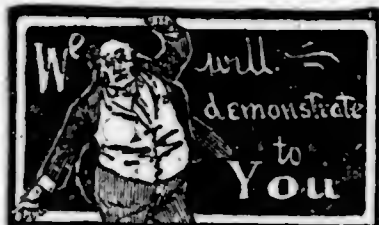 We will
demonstrate
to
You